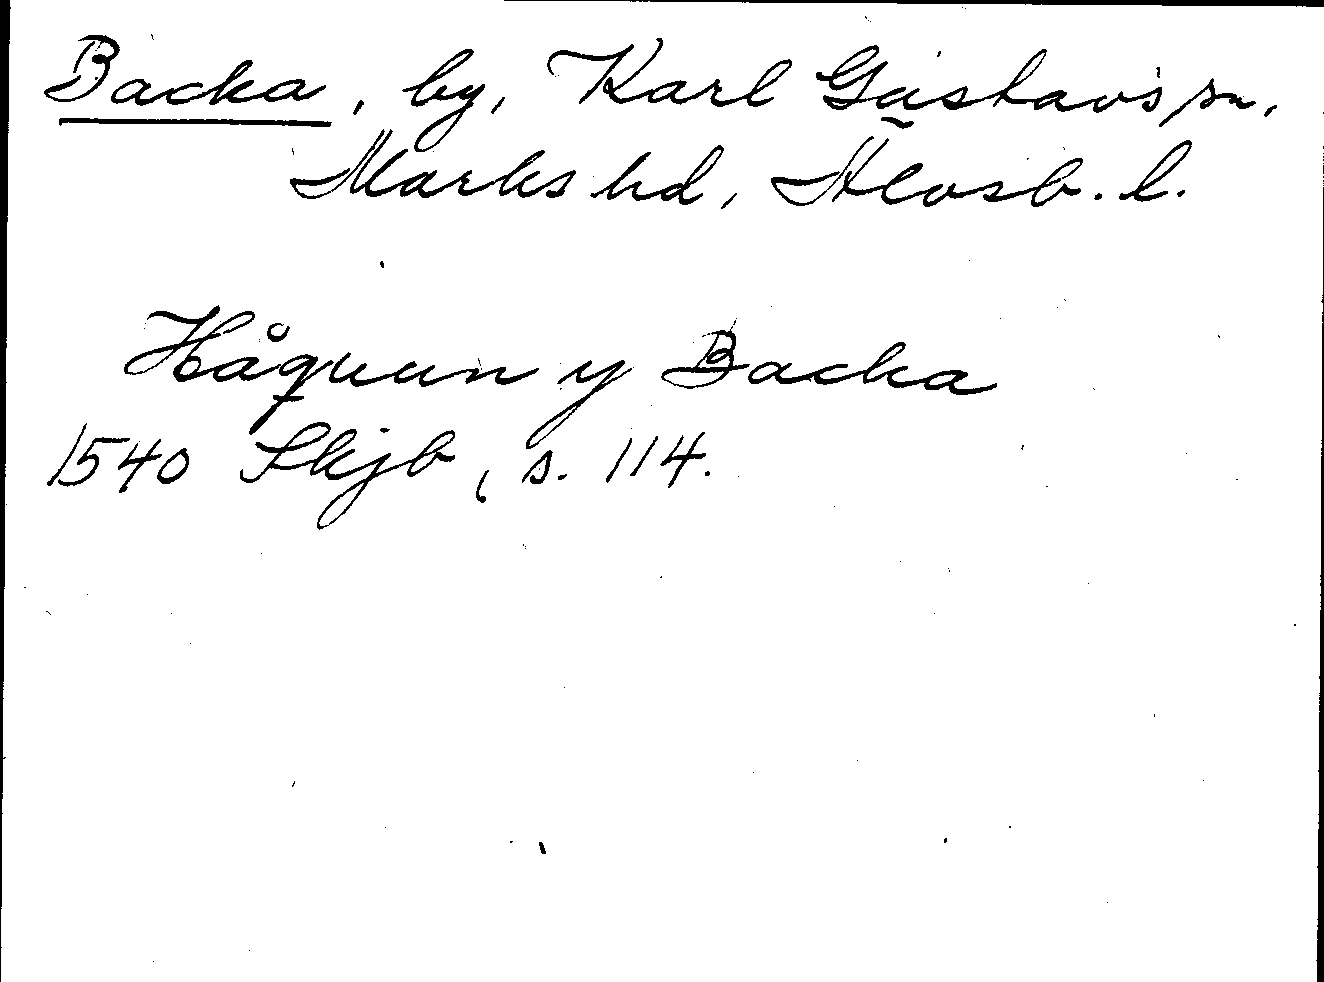 Backa, by, Karl Gustavs sn,
Marks hd, Älvsb. l.
Håquun y Backa
1540 Skjb, s. 114.